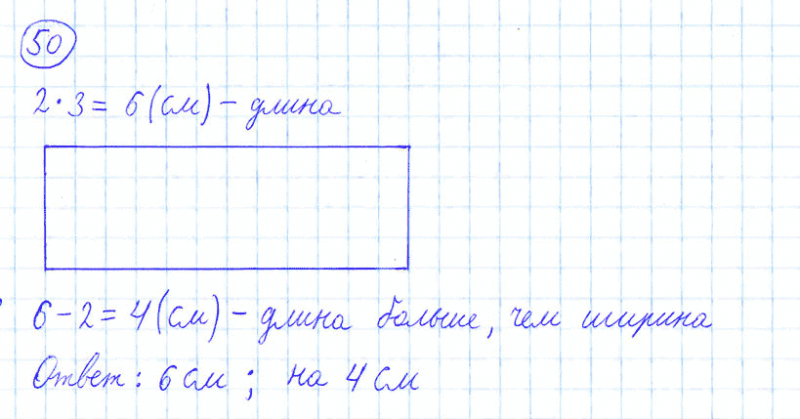 50
2·3 = 6 (см) – длина
6 – 2 = 4 (см) – длина больше, чем ширина
Ответ: 6 см; на 4 см